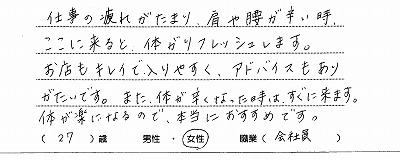 仕事の疲れがたまり、肩や腰が辛い時、
ここに来ると、体がリフレッシュします。
お店もキレイで入りやすく、アドバイスもあり
がたいです。また、体が辛くなった時は、すぐに来ます。
体が楽になるので、本当におすすめです。
( 27 ) 歳 男性 ・ 女性 職業 ( 会社員 )